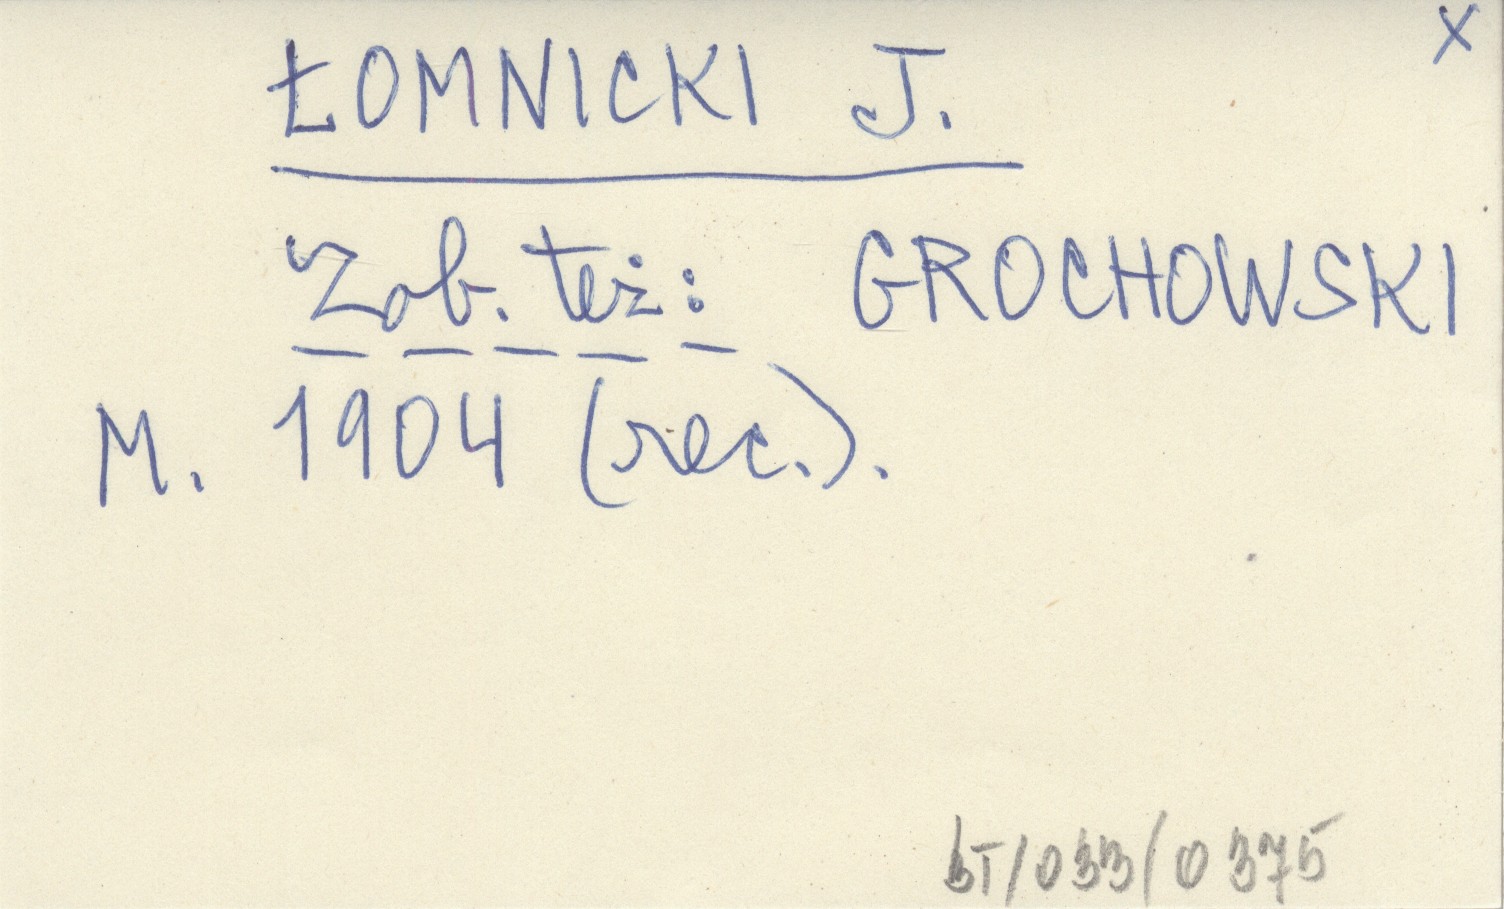 X
ŁOMNICKI J.
Zob. też: GROCHOWSKI
M. 1904 (rec.).
BT/033/0375